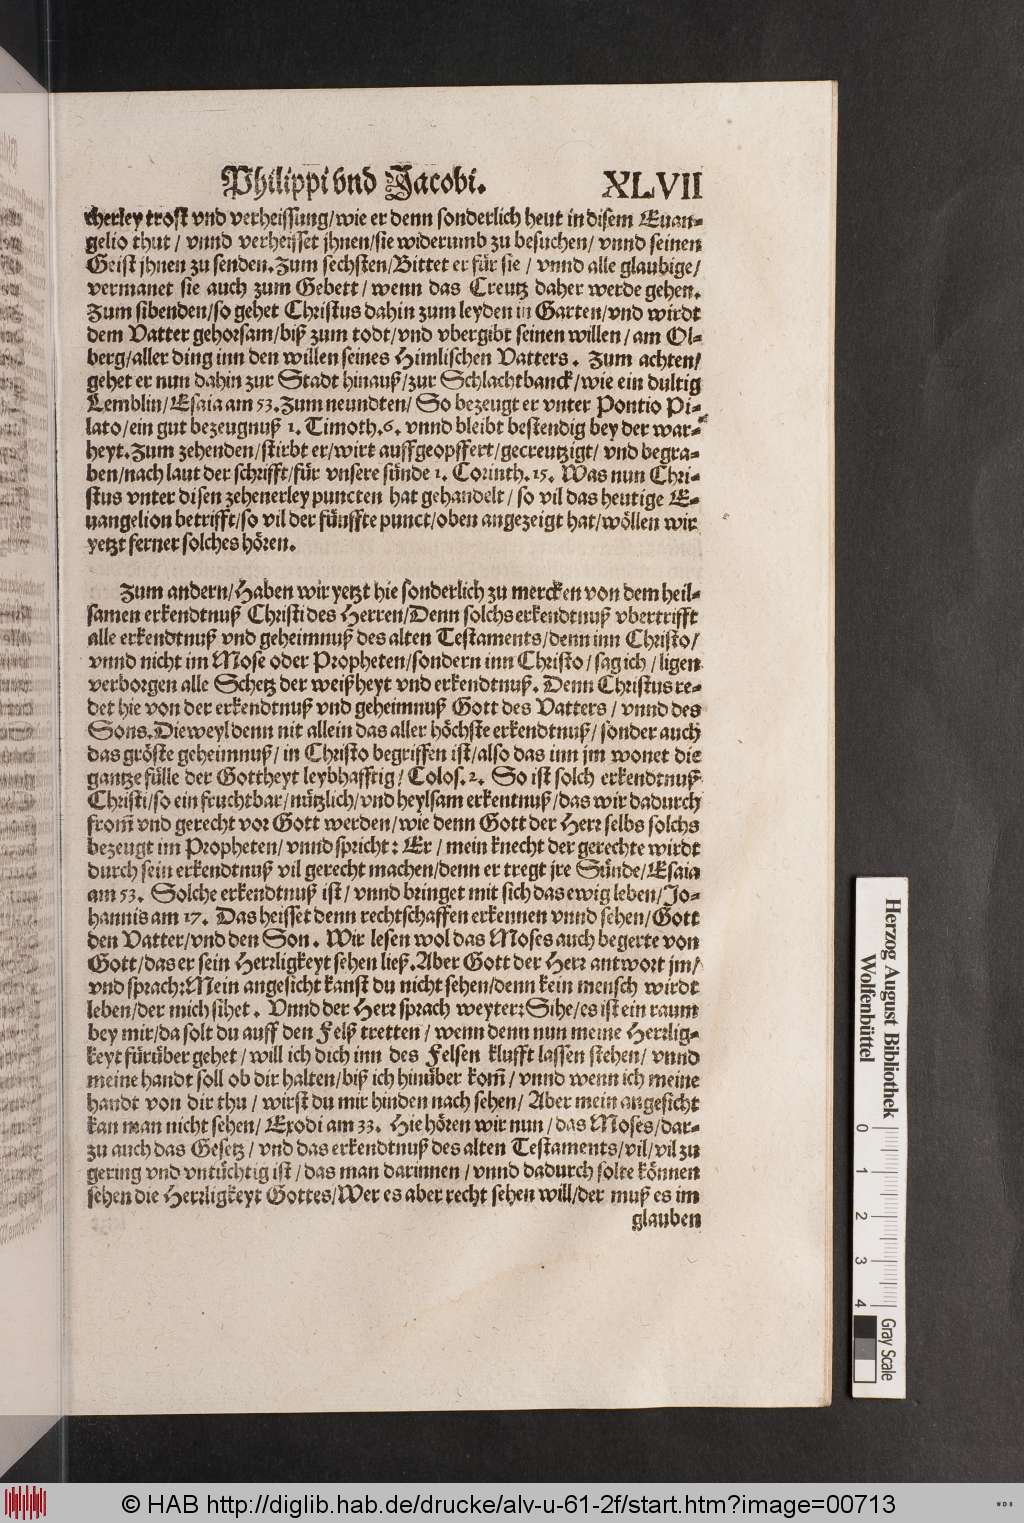 Philippi vnd Jacobi. XLVII
cherley trost vnd verheissung/wie er denn sonderlich heut in disem Euan-
gelio thut/ vnnd verheisset jhnen/sie widerumb zu besuchen/ vnnd seinen
Geist jhnen zu senden.Zum sechsten/Bittet er für sie/ vnnd alle glaubige/
vermanet sie auch zum Gebett/ wenn das Creutz daher werde gehen.
Zum sibenden/so gehet Christus dahin zum leyden in Garten/vnd wirdt
dem Vatter gehorsam/biß zum todt/vnd vbergibt seinen willen/ am Ol-
berg/aller ding inn den willen seines Himlischen Vatters. Zum achten/
gehet er nun dahin zur Stadt hinauß/zur Schlachtbanck/wie ein dultig
Lemblin/Esaia am 53.Zum neundten/ So bezeugt er vnter Pontio Pi-
lato/ein gut bezeugnuß 1. Timoth.6. vnnd bleibt bestendig bey der war-
heyt.Zum zehenden/stirbt er/wirt auffgeopffert/gecreutzigt/ vnd begra-
ben/nach laut der schrifft/für vnsere sünde 1. Corinth.15. Was nun Chri-
stus vnter disen zehenerley puncten hat gehandelt/ so vil das heutige E-
uangelion betrifft/so vil der fünffte punct/oben angezeigt hat/wöllen wir
yetzt ferner solches hören.
Zum andern/Haben wir yetzt hie sonderlich zu mercken von dem heil-
samen erkendtnuß Christi des Herren/Denn solchs erkendtnuß vbertrifft
alle erkendtnuß vnd geheimnuß des alten Testaments/denn inn Christo/
vnnd nicht im Mose oder Propheten/sondern inn Christo/sag ich/ligen
verborgen alle Schetz der weißheyt vnd erkendtnuß. Denn Christus re-
det hie von der erkendtnuß vnd geheimnuß Gott des Vatters/ vnnd des
Sons.Dieweyl denn nit allein das aller höchste erkendtnuß/sonder auch
das gröste geheimnuß/in Christo begriffen ist/also das inn jm wonet die
gantze fülle der Gottheyt leybhafftig/Colos.2. So ist solch erkendtnuß
Christi/so ein fruchtbar/nützlich/vnd heylsam erkentnuß/das wir dadurch
from̃ vnd gerecht vor Gott werden/wie denn Gott der Herr selbs solchs
bezeugt im Propheten/ vnnd spricht: Er/ mein knecht der gerechte wirdt
durch sein erkendtnuß vil gerecht machen/denn er tregt jre Sünde/Esaia
am 53. Solche erkendtnuß ist/ vnnd bringet mit sich das ewig leben/Jo-
hannis am 17. Das heisset denn rechtschaffen erkennen vnnd sehen/Gott
den Vatter/vnd den Son. Wir lesen wol das Moses auch begerte von
Gott/das er sein Herrligkeyt sehen ließ.Aber Gott der Herr antwort jm/
vnd sprach:Mein angesicht kanst du nicht sehen/denn kein mensch wirdt
leben/der mich sihet. Vnnd der Herr sprach weyter:Sihe/es ist ein raum
bey mir/da solt du auff den Felß tretten/ wenn denn nun meine Herrlig-
keyt fürüber gehet/ will ich dich inn des Felsen klufft lassen stehen/ vnnd
meine handt soll ob dir halten/biß ich hinüber kom̃/ vnnd wenn ich meine
handt von dir thu/ wirst du mir hinden nach sehen/ Aber mein angesicht
kan man nicht sehen/Exodi am 33. Hie hören wir nun/das Moses/dar-
zu auch das Gesetz/ vnd das erkendtnuß des alten Testaments/vil/vil zu
gering vnd vntüchtig ist/das man darinnen/vnnd dadurch solte können
sehen die Herrligkeyt Gottes/Wer es aber recht sehen will/der muß es im
glauben
Herzog August Bibliothek
Wolfenbüttel
0 1 2 3 4
Gray Scale
© HAB http://diglib.hab.de/drucke/alv-u-61-2f/start.htm?image=00713